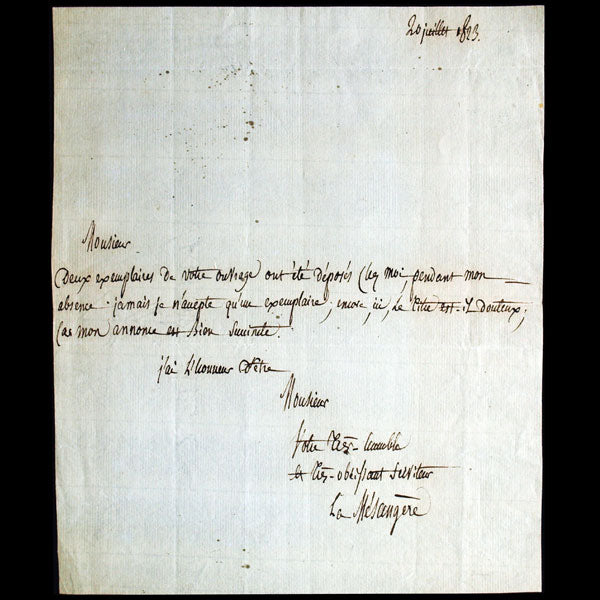 20 juillet 1823.
Monsieur
Deux exemplaires de votre ouvrage ont été déposés chez moi, pendant mon
absence. jamais je n'accepte qu'un exemplaire; encore, ici, le titre est-il douteux;
car mon annonce est bien succinte.
j'ai l'honneur d'être
Monsieur
Votre très-humble
et très-obéissant serviteur
La Mésangère